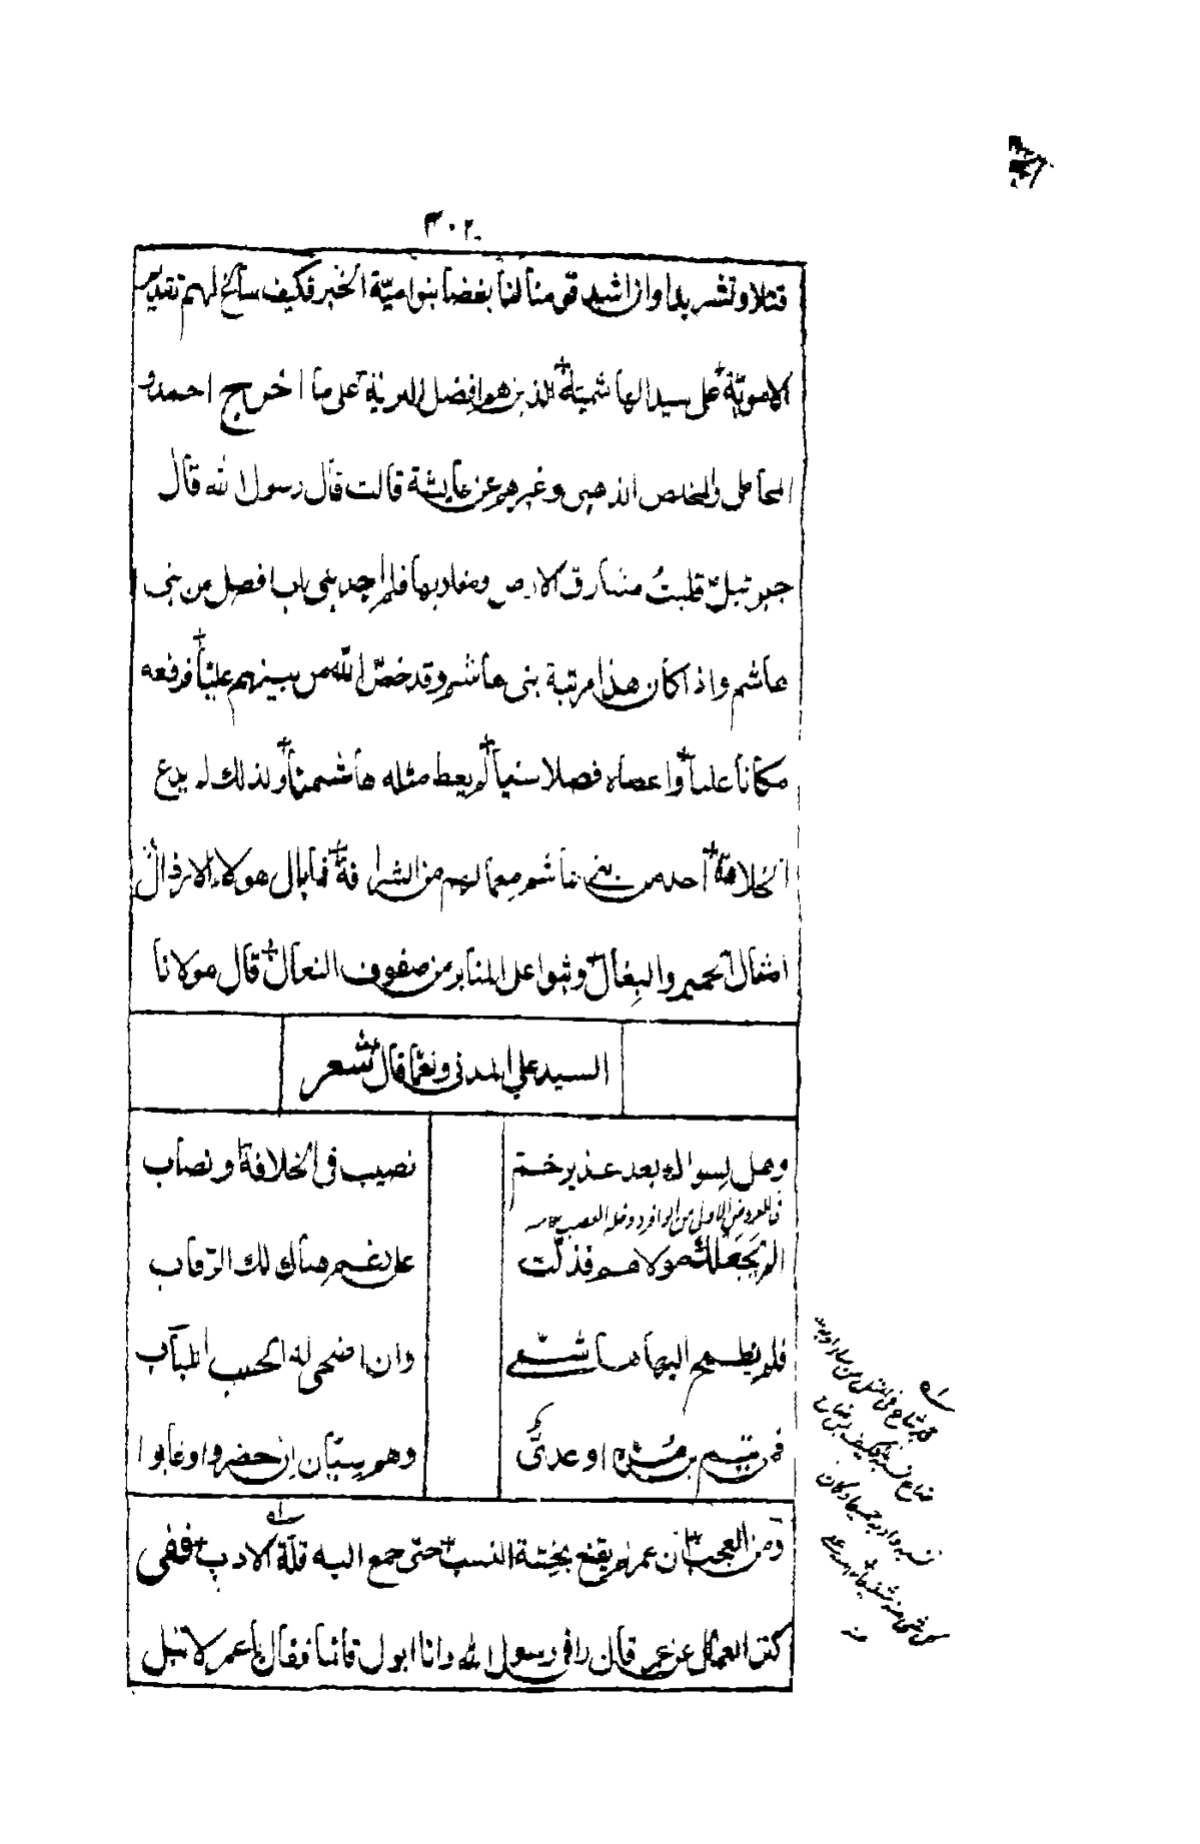 ٣٠٢
قتلا وتشريدا وان اشد قومنا لنا بغضا بنو اميّة الخبر فكيف ساغ لهم تقديم
الامويّة على سيد الهاشميّة الذين هم افضل البريّة على ما اخرج احمد و
المحاملى والمخلص الذهبى وغيرهم عن عايشة قالت قال رسول الله قال
جبرئيل قلبتُ مشارق الارض ومغاربها فلم اجد بنى اب افضل من بنى
هاشم واذا كان هذا مرتبة بنى هاشم وقد خصّ الله من بينهم عليّاً فرفعه
مكانا عليا واعطاه فضلا سنيا لم يعط مثله هاشميّا ولذلك لم يدع
الخلافة احد من بنى هاشم مع ما لهم من الشرافة فما بال هولاء الارذال
امثال الحمير والبغال وثبوا على المنابر من صفوف النعال قال مولانا
السيد علي المدنى ونعمّا قال شعر
وهل لسواك بعد غدير خمّ نصيب فى الخلافة او نصاب
الم يجعلك مولاهم فذلّت على رغم هناك لك الرّقاب
فلم يطمح اليها هاشمى وان اضحى له الحسب اللباب
فمن تيم بن مُرّة او عدىّ وهم سيّان ان حضروا او غابوا
ومن العجب ان عمر لم يقنع بخسّة النسب حتّى جمع اليه قلّة الادب ففى
كنز العمال عن عمر قال رانى رسول الله وانا ابول قائما فقال يا عمر لا تبل
منه